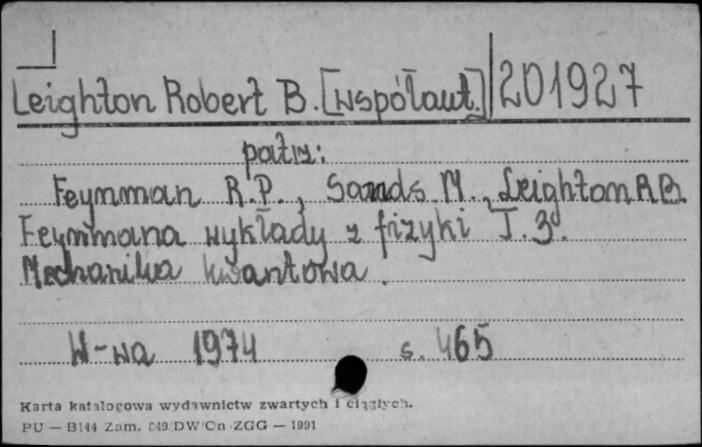 Leighton Robert B. [współaut.] 201927
patrz:
Feynman R.P., Sands M., Leighton R.B.
Feynmana wykłady z fizyki T.3.
Mechanika kwantowa.
W-wa 1974 s. 465
Karta katalogowa wydawnictw zwartych i ciągłych.
PU — B144 Zam. 849/DW/Cn ZGG — 1991